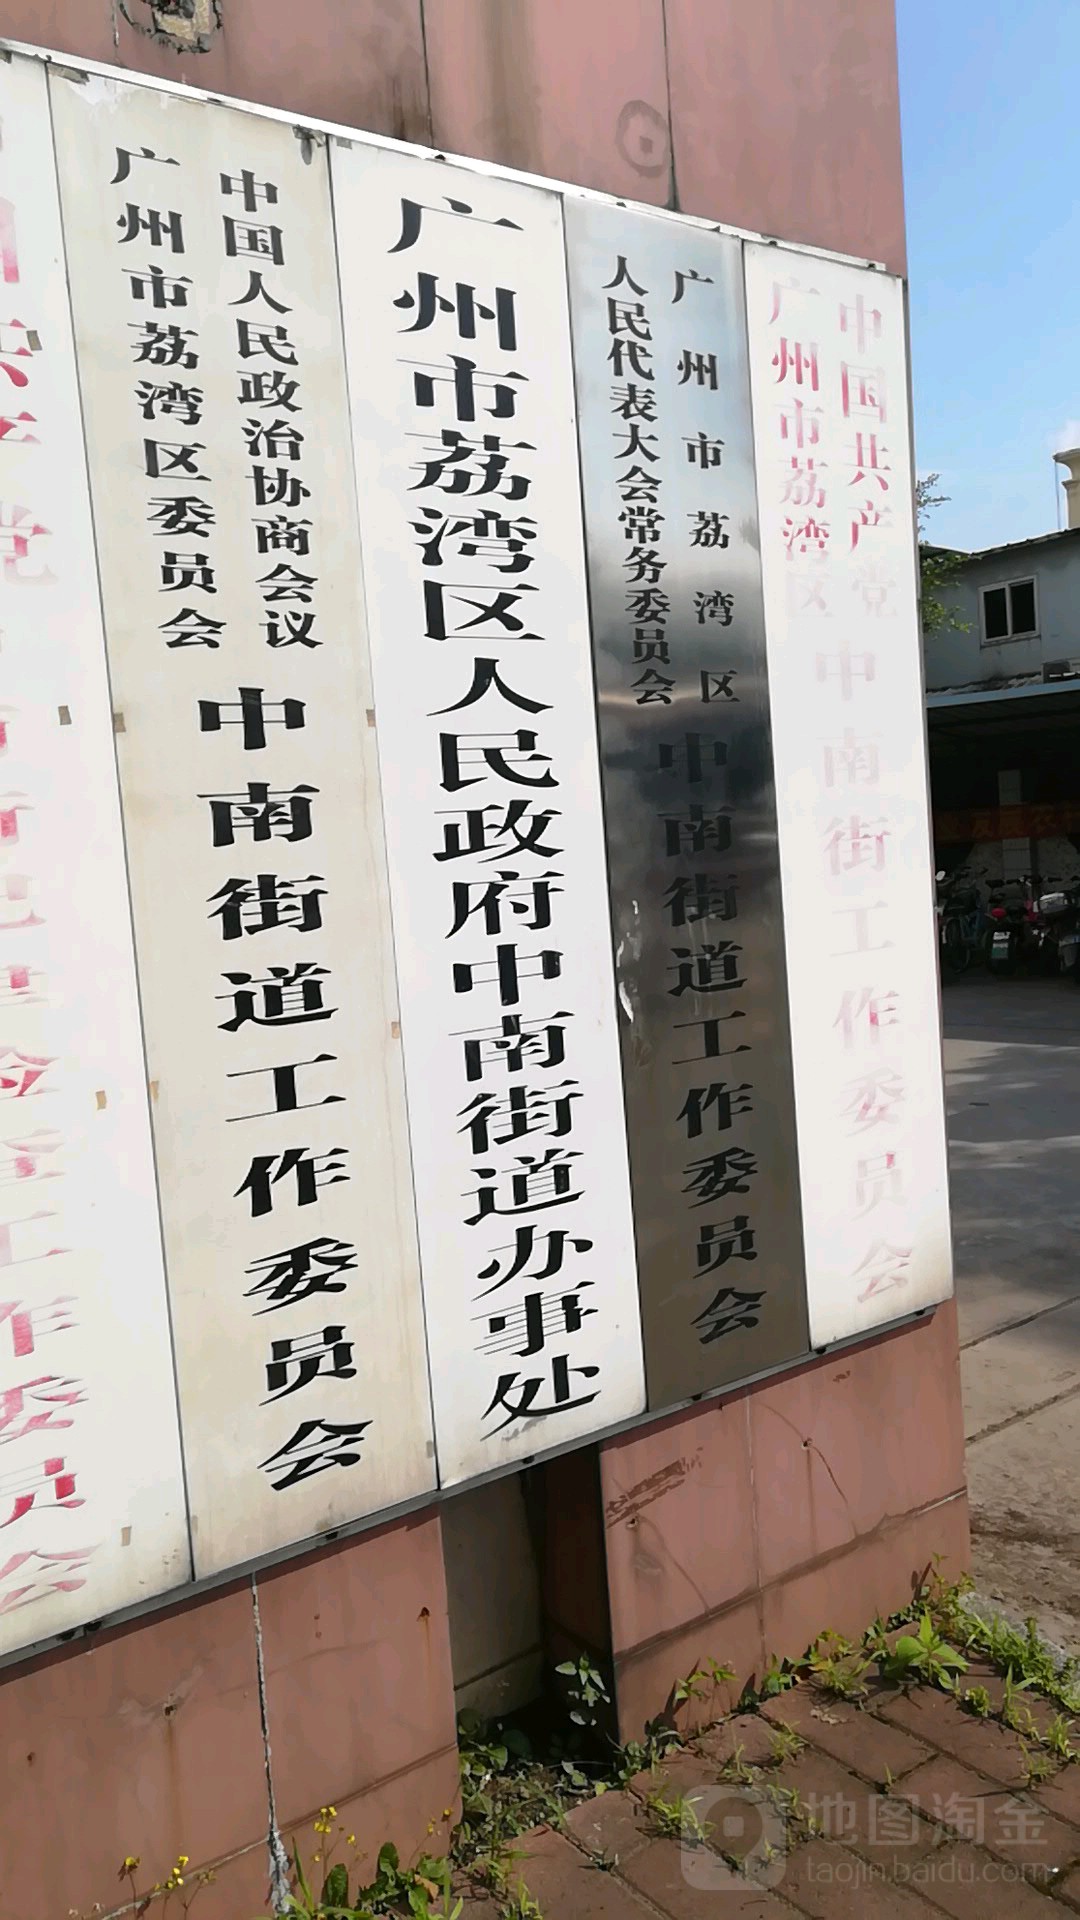 中国共产党
广州市荔湾区
中南街工作委员会
广州市荔湾区
人民代表大会常务委员会
中南街道工作委员会
广州市荔湾区人民政府中南街道办事处
中国人民政治协商会议
广州市荔湾区委员会
中南街道工作委员会
地图淘金
taojin.baidu.com